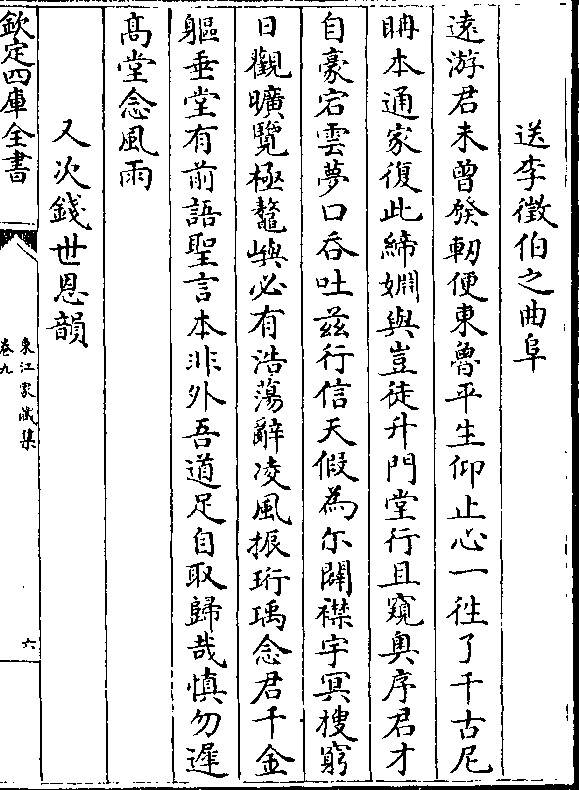 送李徵伯之曲阜
逺游君未曾發軔便東魯平生仰止心一徃了千古尼
聃本通家復此締婣與豈徒升門堂行且窺奥序君才
自豪宕雲夢口吞吐兹行信天假為尓闢襟宇冥搜窮
日觀曠覽極鼇嶼必有浩蕩辭凌風振珩瑀念君千金
軀垂堂有前語聖言本非外吾道足自取歸哉慎勿遲
髙堂念風雨
又次錢世恩韻
欽定四庫全書
東江家藏集
卷九
六